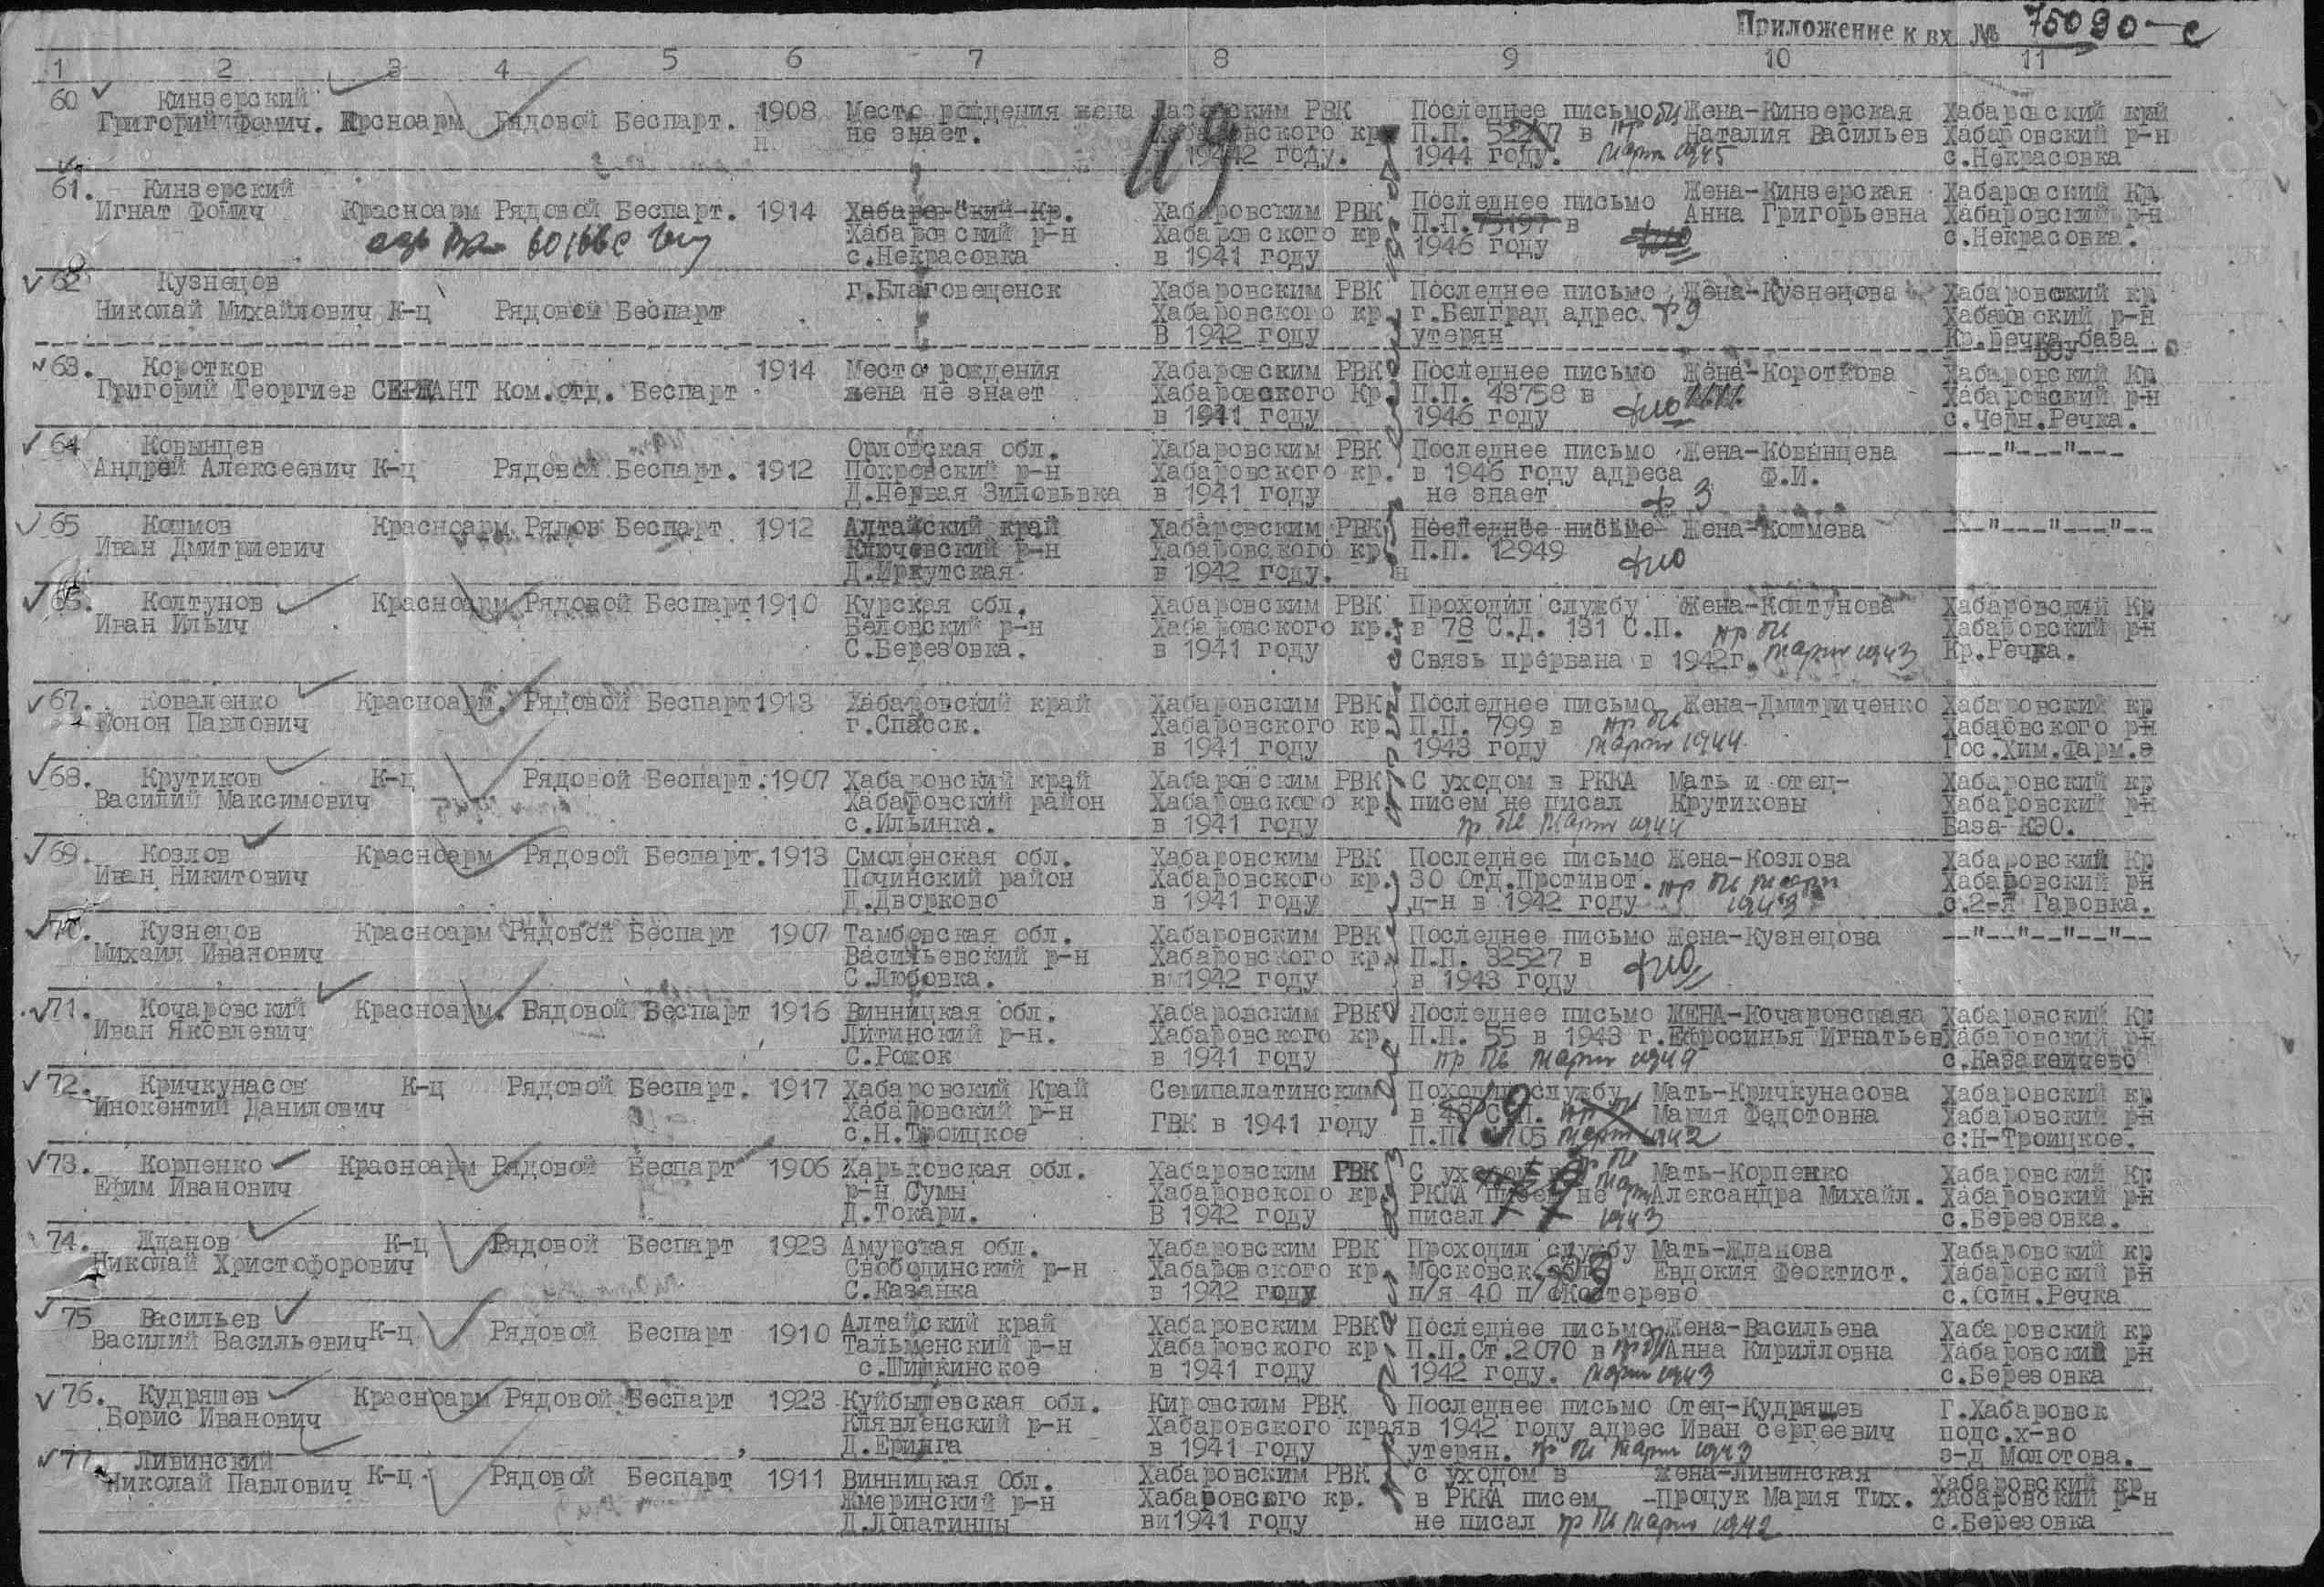 Приложение к вх. № 75090-с
1 2 3 4 5 6 7 8 9 10 11
60 Кинзерский 1908 Место рождения жена РВК Последнее письмо Жена-Кинзерская Хабаровский край
Григорий Фомич. Рядовой Беспарт. не знает. П.П. в Наталия Васильев Хабаровский р-н
году. 1944 году. март 1945 с.Некрасовка
61. Кинзерский Жена-Кинзерская Хабаровский Кр.
Игнат Фомич Красноарм Рядовой Беспарт. 1914 Хабаровский Кр. Хабаровским РВК Последнее письмо Анна Григорьевна Хабаровский р-н
Хабаровский р-н Хабаровского кр П.П. 75197 в с.Некрасовка.
с.Некрасовка в 1941 году 1946 году
62 Кузнецов г.Благовещенск Хабаровским РВК Последнее письмо Жена-Кузнецова Хабаровский кр
Николай Михайлович К-ц Рядовой Беспарт Хабаровского кр. г.Белград адрес. Хабаровский р-н
В 1942 году утерян Кр.Речка база
63. Коротков 1914 Место рождения Хабаровским РВК Последнее письмо Жена-Короткова Хабаровский Кр
Григорий Георгиев СЕРЖАНТ Ком.отд. Беспарт жена не знает Хабаровского Кр. П.П. 48758 в Хабаровский р-н
в 1941 году 1946 году с.Черн.Речка.
64 Ковынцев Орловская обл. Хабаровским РВК Последнее письмо Жена-Ковынцева ----"---"---
Андрей Алексеевич К-ц Рядовой Беспарт. 1912 Покровский р-н Хабаровского кр. в 1946 году адреса Ф.И.
Д.Первая Зиновьвка в 1941 году не знает
65 Кошмов Красноарм Рядов Беспарт 1912 Алтайский край Хабаровским РВК Последнее письмо Жена-Кошмева ---"---"---"--
Иван Дмитриевич Ключевский р-н Хабаровского кр П.П. 12949
Д.Иркутская в 1942 году.
Колтунов Красноарм Рядовой Беспарт 1910 Курская обл. Хабаровским РВК Проходил службу Жена-Колтунова Хабаровский Кр
Иван Ильич Беловский р-н Хабаровского кр. в 78 С.Д. 131 С.П. Хабаровский рн
С.Березовка. в 1941 году Связь прервана в 1942г. март 1943 Кр.Речка.
67. Коваленко Красноарм. Рядовой Беспарт 1913 Хабаровский край Хабаровским РВК Последнее письмо Жена-Дмитриченко Хабаровский кр
Конон Павлович г.Спасск. Хабаровского кр. П.П. 799 в Хабаровского рн
в 1941 году 1943 году март 1944 Гос.Хим.Фарм.з
68. Крутиков К-ц Рядовой Беспарт. 1907 Хабаровский край Хабаровским РВК С уходом в РККА Мать и отец- Хабаровский кр
Василий Максимович Хабаровский район Хабаровского кр. писем не писал Крутиковы Хабаровский рн
с.Ильинка. в 1941 году март 1944 База КЭО.
69. Козлов Красноарм Рядовой Беспарт. 1913 Смоленская обл. Хабаровским РВК Последнее письмо Жена-Козлова Хабаровский Кр
Иван Никитович Починский район Хабаровского кр. 30 Отд.Противот. март Хабаровский рн
Д.Дворково в 1941 году д-н в 1942 году 1943 с.2-я Гаровка.
70. Кузнецов Красноарм Рядовой Беспарт 1907 Тамбовская обл. Хабаровским РВК Последнее письмо Жена-Кузнецова --"--"--"--"--
Михаил Иванович Васильевский р-н Хабаровского кр. П.П. 32527 в
С.Любовка. в 1942 году в 1943 году
71. Кочаровский Красноарм. Рядовой Беспарт 1916 Винницкая обл. Хабаровским РВК Последнее письмо ЖЕНА-Кочаровская Хабаровский Кр
Иван Яковлевич Литинский р-н. Хабаровского кр. П.П. 55 в 1943 г. Ефросинья Игнатьев Хабаровский рн
С.Рожок в 1941 году март с.Казакеичево
72. Кричкунасов К-ц Рядовой Беспарт. 1917 Хабаровский Край Семипалатинским службу Мать-Кричкунасова Хабаровский кр
Инокентий Данилович Хабаровский р-н ГВК в 1941 году Мария Федотовна Хабаровский рн
с.Н.Троицкое П.П. март 1942 с:Н-Троицкое.
73. Корпенко Красноарм Рядовой Беспарт 1906 Харьковская обл. Хабаровским РВК С уходом в Мать-Корпенко Хабаровский Кр
Ефим Иванович р-н Сумы Хабаровского кр. РККА писем не март Александра Михайл. Хабаровский рн
Д.Токари. В 1942 году писал 1943 с.Березовка.
74. Жданов К-ц Рядовой Беспарт 1923 Амурская обл. Хабаровским РВК Проходил службу Мать-Жданова Хабаровский кр
Николай Христофорович Свободинский р-н Хабаровского кр. Московск. Евдокия Феоктист. Хабаровский рн
С.Казанка в 1942 году п/я 40 п/о Костерево с.Осин.Речка
75 Васильев Алтайский край Хабаровским РВК Последнее письмо Жена-Васильева Хабаровский кр
Василий Васильевич К-ц Рядовой Беспарт 1910 Тальменский р-н Хабаровского кр. П.П.Ст.2070 в Анна Кирилловна Хабаровский рн
с.Шишкинское в 1941 году 1942 году. март 1943 с.Березовка
76. Кудряшев Красноарм Рядовой Беспарт 1923 Куйбышевская обл. Кировским РВК Последнее письмо Отец-Кудряшев Г.Хабаровск
Борис Иванович Клявленский р-н Хабаровского края в 1942 году адрес Иван сергеевич подс.х-во
Д.Еринга в 1941 году утерян. март 1943 з-д Молотова.
77. Ливинский Хабаровским РВК с уходом в Жена-Ливинская Хабаровский кр
Николай Павлович К-ц Рядовой Беспарт 1911 Винницкая Обл. Хабаровского кр. в РККА писем -Процук Мария Тих. Хабаровский р-н
Жмеринский р-н ви1941 году не писал март 1942 с.Березовка
Д.Лопатинцы